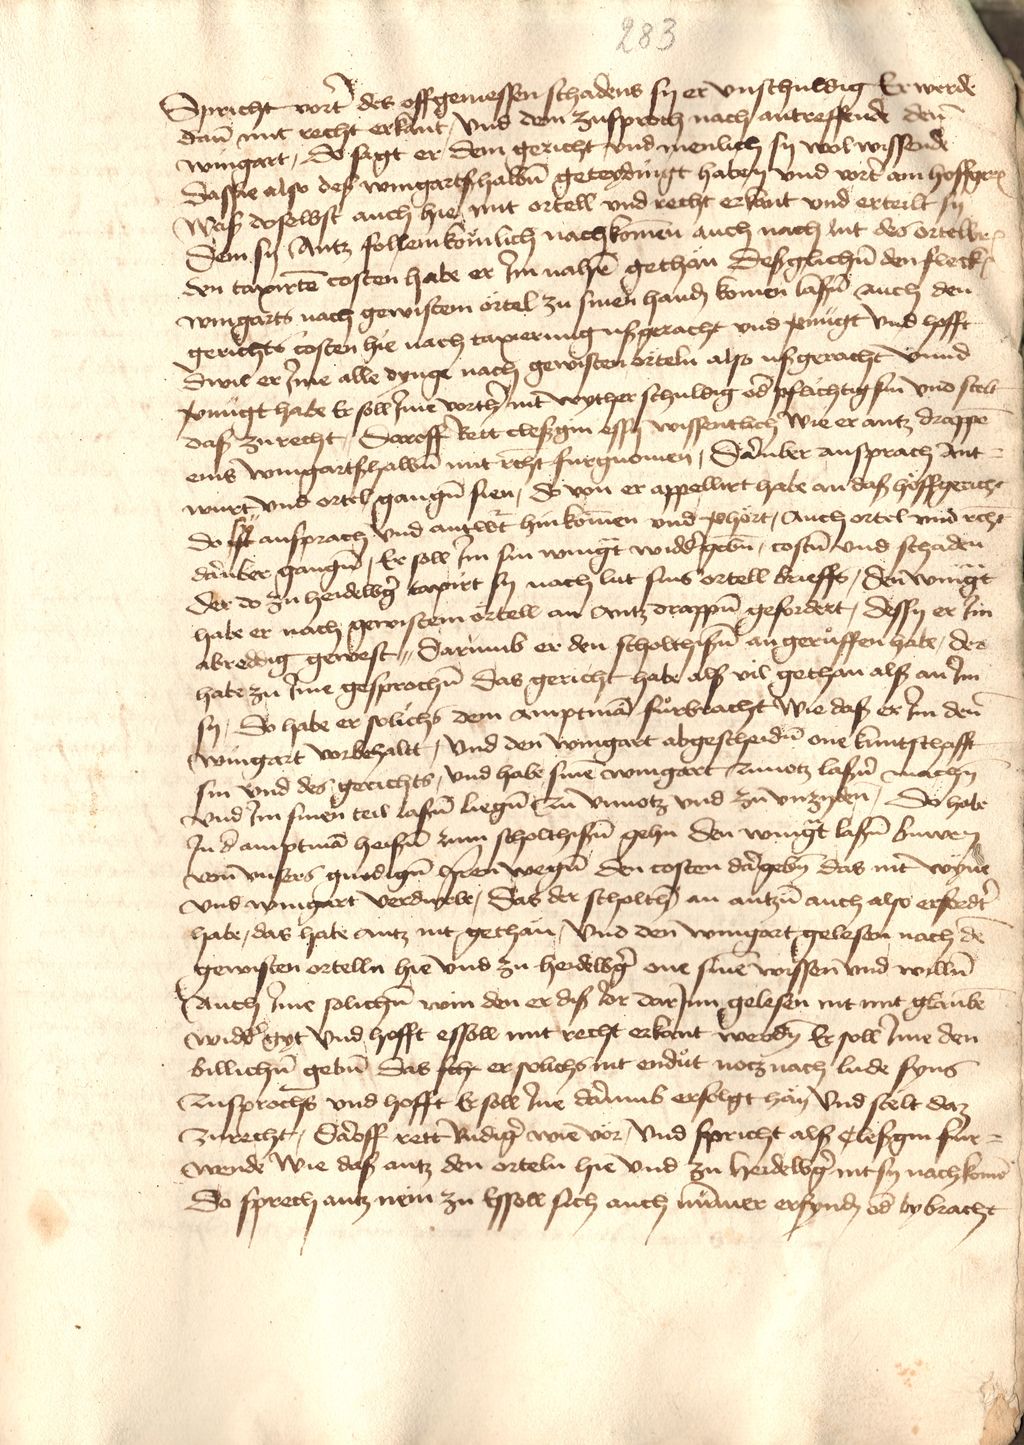 283
Spricht vort des offgemessen schadens sy er vnschuldig Er werde
dan mit recht erkant / Vnd dem zusproch nach antreffende den
wingart / So sagt er dem gericht vnd menlich sy wol wissende
das sie also des wingartßhalbn geteydingt haben vnd vort am hoffger
Waß doselbst auch hie mit ortell vnd recht erkant vnd erteilt sy
Dem sy Antz follenkomlich nachkomen auch nach Int des ortelbr
den taxirten costen habe er Im nahe gethan Deßglichn den fleck
wingarts nach gewistem ortel zu sinen handen komen lassn auch den
gerichts costen hie nach taxierung ußgeracht vnd genugt Vnd hofft
Dwil er Ime alle dynge nach gewisten orteln also ußgeracht vnnd
genugt habe Er soll Ime vorth nit wyther schuldig od pflichtig sin vnd stelt
daß zu recht / Daroff kert cleßgin essy wissentlich Wie er antz drappen
eins wingartßhalbn mit recht furgnomen / Daruber ansprach Ant-
wurt vnd ortel gangn sien / do von er appellirt habe an daß hoffgericht
do sy ansprach vnd antwt hinkomen vnd gehort / Auch ortel vnd recht
daruber gangn / Er soll Im sin wingt widd gebn / costn vnd schaden
der do zu heidelbg taxirt sy nach lut sins ortell brieffs / Den wingt
habe er nach gewistem ortell an Antz drappn gefordert / dessy er Im
abreddig gewest // Darumb er den scholthisn angeruffen habe / der
habe zu Ime gesprochn Das gericht habe alß vil gethan alß an Im
sy / So habe er solichs dem amptman furbracht Wie daß er Im den
wingart vorbehaltt / Vnd den wingart abgescheidn one kuntschafft
sin vnd des gerichts / vnd habe sinen wingart zu notz lassn machen
Vnd Im sinen teil lassn liegn zu vnnotz vnd zu vnzyden / Do habe
In d amptman heissn zum scholthisn gehn den wingt lassn buwen
von vnsers gnedign Hren wegn den costen dargeben das nit wyne
vnd wingart verdurbe / Das der scholths an antzn auch also erfordt
habe / das habe antz nit gethan / Vnd den wingart gelesen nach den
gewisten ortelln hie vnd zu heidelbg one sinen wissen vnd willn
Auch Ime solichn win den er diß Jor dar Inn gelesen nit mit glauben
widd gyt Vnd hofft essoll mit recht erkant werden Er soll Ime den
billichn gebn Das er solichs nit endut noch nach lude syns
zusprochs vnd hofft Er soll Ine darumb erfolgt han Vnd stelt daz
zu recht / Daroff rett Rudig wie vor / Vnd spricht alß cleßgin fur-
wende Wie daß antz den orteln hie vnd zu heidelbg nit sy nachkomen
Do sprech antz nein zu Essoll sich auch nummer erfynden od bybracht